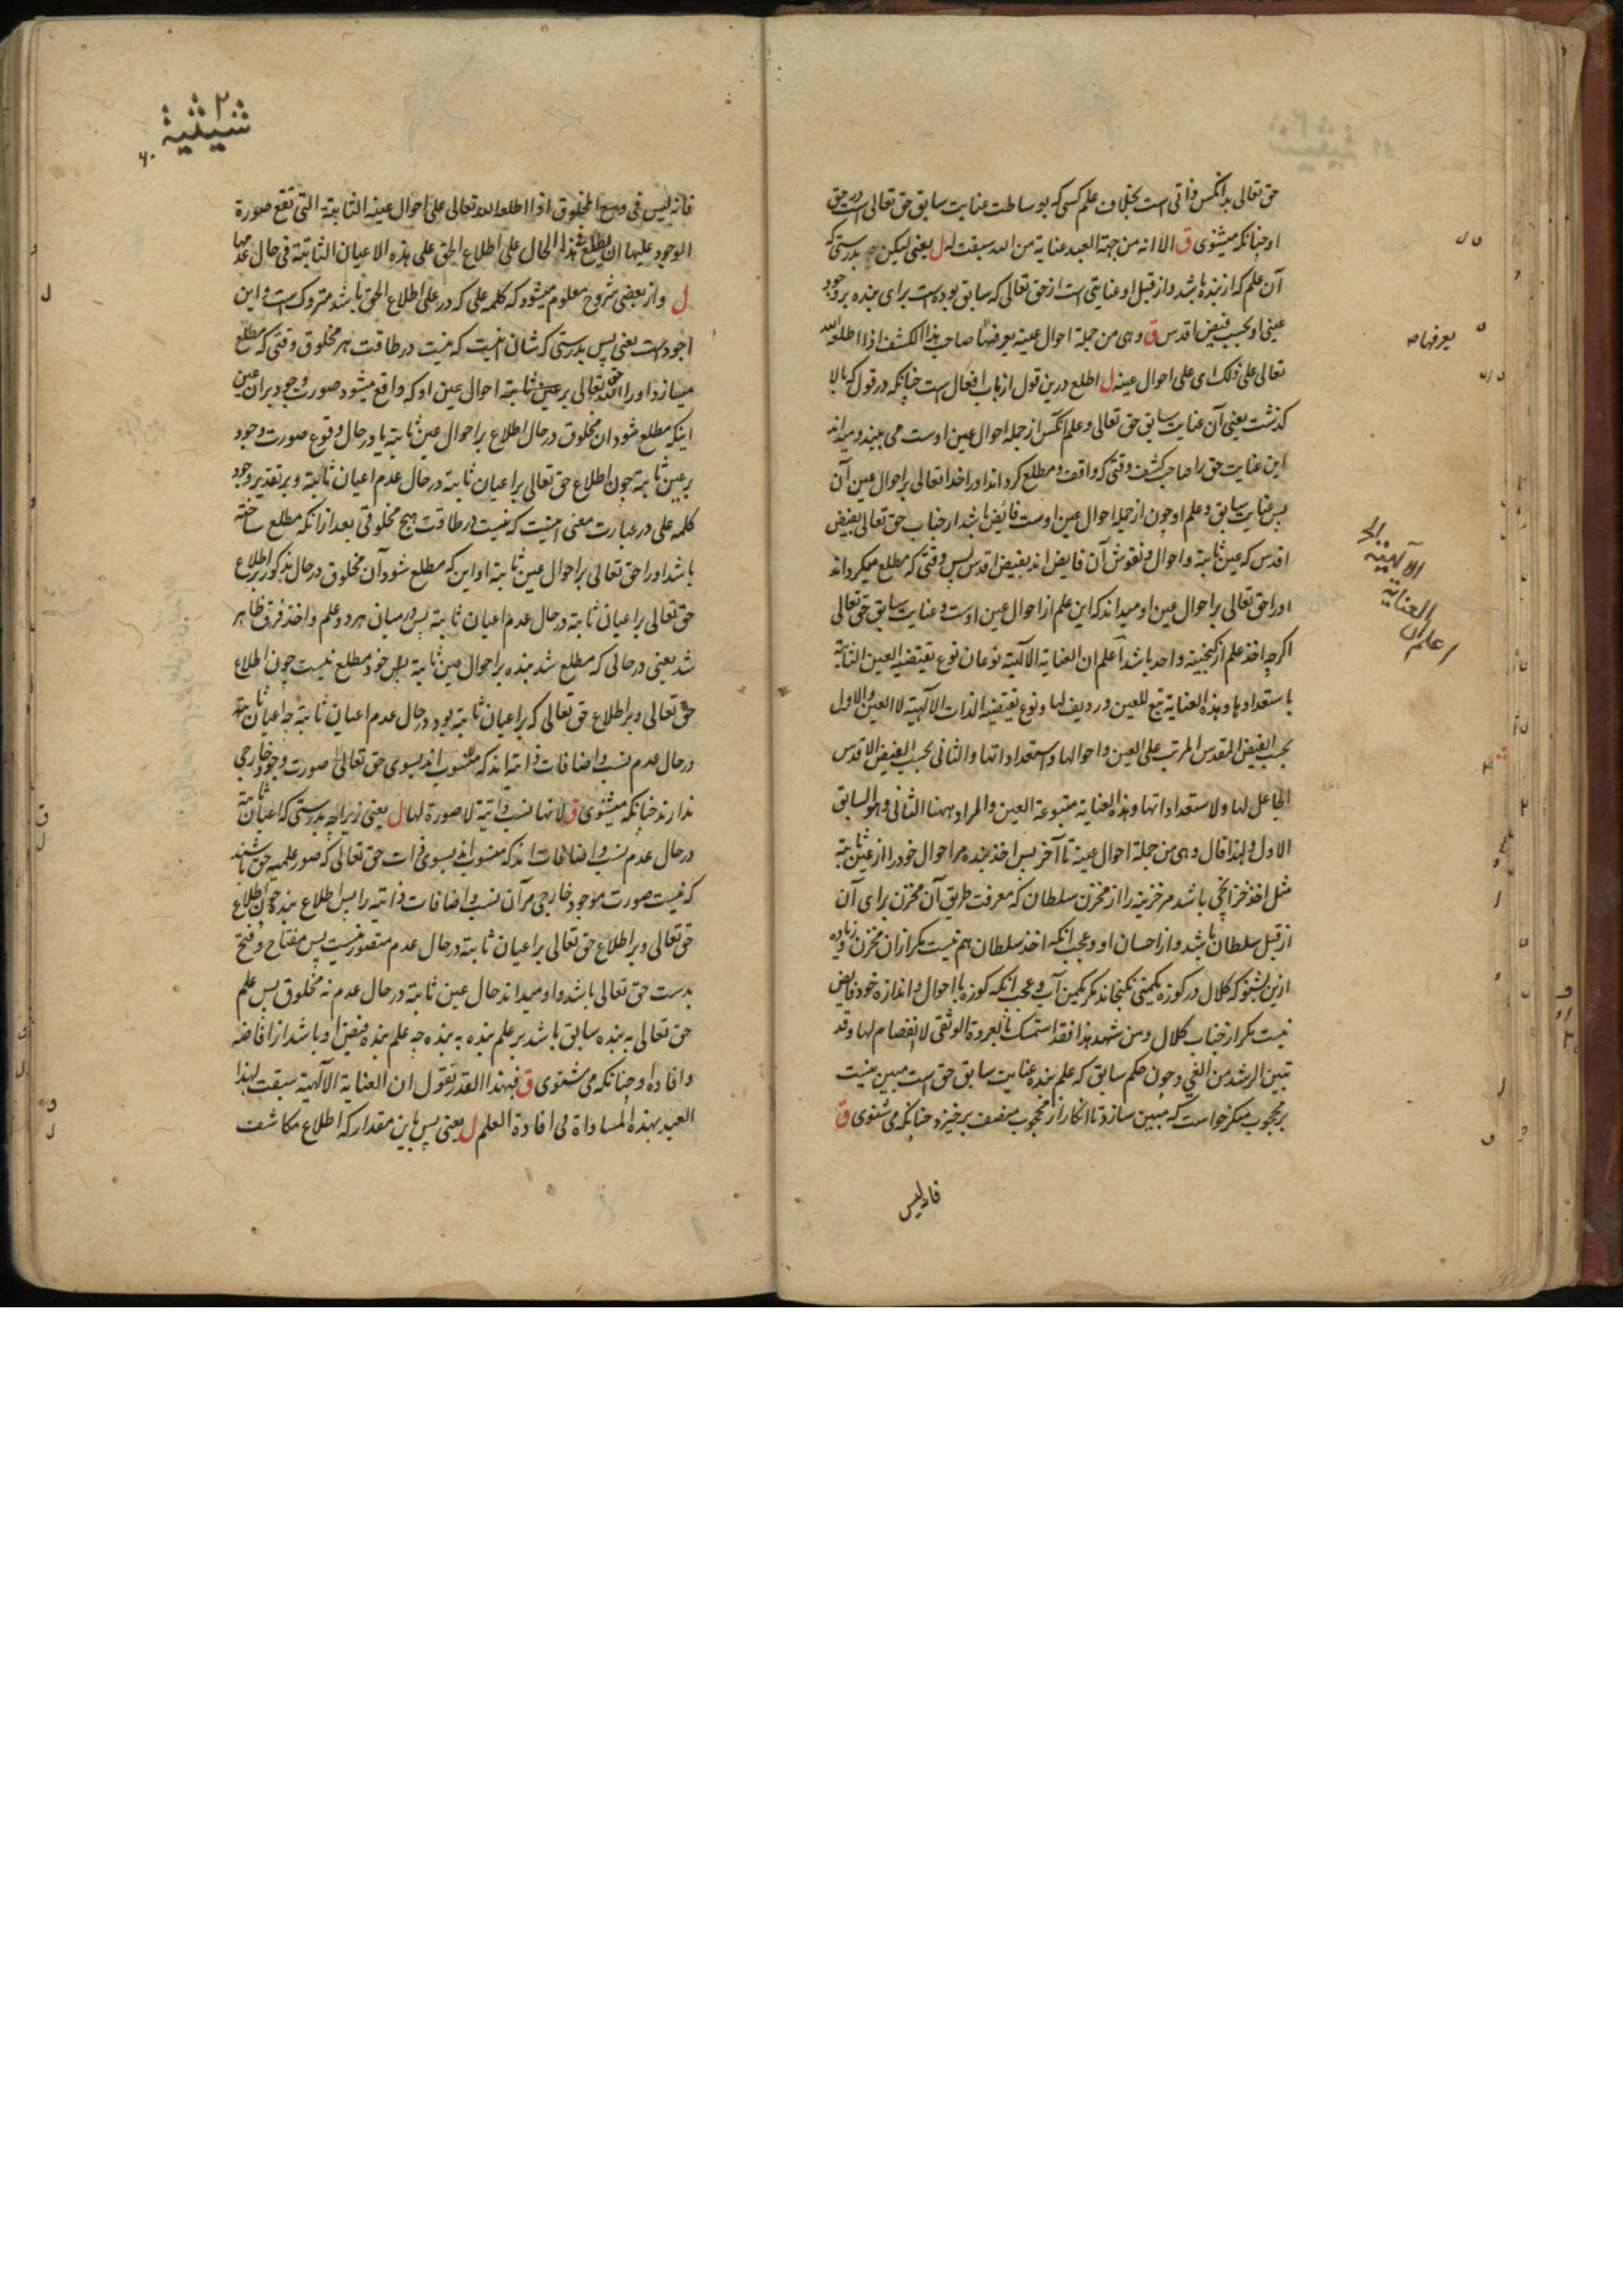 حق تعالی بدانکس ذاتی است بخلاف علم کسی که بوساطت عنایت سابق حق تعالی است در حق
او چنانکه میشنوی ق الا انه من جهة العبد عنایة من الله سبقت له ل یعنی لیکن بدرستی که
آن علم که از بنده باشد و از قبل او عنایتی است از حق تعالی که سابق بوده است برای بنده بر وجود
عینی او بحسب فیض اقدس ق وهی من جملة احوال عینه یعرفها صاحب هذا الکشف اذا اطلعه الله
تعالی علی ذلک ای علی احوال عینه ل اطلع درین قول از باب افعال است چنانکه در قول که بالا
گذشت یعنی آن عنایت سابق حق تعالی و علم آنکس از جمله احوال عین اوست می بیند و میداند
این عنایت حق را صاحب کشف وقتی که واقف و مطلع گرداند او را خدا تعالی بر احوال عین آن
پس عنایت سابق و علم او چون از جمله احوال عین اوست فائض باشد از جناب حق تعالی بفیض
اقدس که عین ثابتة و احوال و نقوش آن فایض اند بفیض اقدس پس وقتی که مطلع میگرداند
او را حق تعالی بر احوال عین او میداند که این علم از احوال عین اوست و عنایت سابق حق تعالی
اگرچه اخذ علم از گنجینه واحد باشد اعلم ان العنایة الآلهیة نوعان نوع تقتضیه العین الثابتة
باستعدادها و هذه العنایة تتبع للعین و ردیف لها و نوع تقتضیه الذات الآلهیة لا العین و الاول
بحسب الفیض المقدس المرتب علی العین و احوالها و استعداداتها و الثانی بحسب الفیض الاقدس
الجاعل لها و لاستعداداتها و هذه العنایة متبوعة العین و المراد ههنا الثانی و هو السابق
الاول و لهذا قال وهی من جملة احوال عینه تا آخر پس اخذ بنده مر احوال خود را از عین ثابتة
مثل اخذ خزانچی باشد مر خزینه را از مخزن سلطان که معرفت طریق آن مخزن برای آن
از قبل سلطان باشد و از احسان او و عجب آنکه اخذ سلطان هم نیست مگر ازان مخزن و زیاده
ازین بشنو که کلال در کوزه یکمنی نگنجاند مگر یکمن آب و عجب آنکه کوزه با احوال و اندازه خود فایض
نیست مگر از جناب کلال و من شهد هذا فقد استمسک بالعروة الوثقی لا انفصام لها و قد
تبین الرشد من الغی و چون حکم سابق که علم بنده عنایت سابق حق است مبین نیست
بر محجوب منکر خواست که مبین سازد تا انکار از محجوب منصف برخیزد چنانکه می شنوی ق
فانه لیس
یعرفها صه
اعلم ان
العنایة
الآلهیة الخ
شیثیة
۶۰
فانه لیس فی وسع المخلوق اذا اطلعه الله تعالی علی احوال عینه الثابتة التی تقع صورة
الوجود علیها ان یطلع فی هذا الحال علی اطلاع الحق علی هذه الاعیان الثابتة فی حال عدمها
ل و از بعضی شروح معلوم میشود که کلمه علی که در علی اطلاع الحق باشد متروک است و این
اجود است یعنی پس بدرستی که شان اینست که نیست در طاقت هر مخلوق وقتی که مطلع
میسازد او را حق تعالی بر عین ثابتة احوال عین او که واقع میشود صورت وجود بران عین
اینکه مطلع شود ان مخلوق در حال اطلاع بر احوال عین ثابته یا در حال وقوع صورت وجود
بر عین ثابتة چون اطلاع حق تعالی بر اعیان ثابتة در حال عدم اعیان ثابتة و بر تقدیر وجود
کلمه علی در عبارت معنی اینست که نیست در طاقت هیچ مخلوقی بعد ازانکه مطلع ساخته
باشد او را حق تعالی بر احوال عین ثابتة او این که مطلع شود آن مخلوق در حال مذکور بر اطلاع
حق تعالی بر اعیان ثابتة در حال عدم اعیان ثابتة پس در میان هر دو علم و اخذ فرق ظاهر
شد یعنی در حالی که مطلع شد بنده بر احوال عین ثابتة خود مطلع نیست چون اطلاع
حق تعالی و بر اطلاع حق تعالی که بر اعیان ثابتة بود در حال عدم اعیان ثابتة چه اعیان ثابتة
در حال عدم نسب و اضافات ذاتیه اند که منسوب اند بسوی حق تعالی صورت وجود خارجی
ندارند چنانکه میشنوی ق لانها نسب ذاتیة لا صورة لها ل یعنی زیراچه بدرستی که اعیان ثابتة
در حال عدم نسب و اضافات اند که منسوب اند بسوی ذات حق تعالی که صور علمیه حق باشند
که نیست صورت موجود خارجی مر آن نسب و اضافات ذاتیه را پس اطلاع بنده چون اطلاع
حق تعالی و بر اطلاع حق تعالی بر اعیان ثابتة در حال عدم متصور نیست پس مفتاح و فتح
بدست حق تعالی باشد و او میداند حال عین ثابتة در حال عدم نه مخلوق پس علم
حق تعالی به بنده سابق باشد بر علم بنده به بنده چه علم بنده فیض او باشد از افاضه
و افاده او چنانکه می شنوی ق فبهذا القدر نقول ان العنایة الآلهیة سبقت لهذا
العبد بهذه المساواة فی افادة العلم ل یعنی پس باین مقدار که اطلاع مکاشف